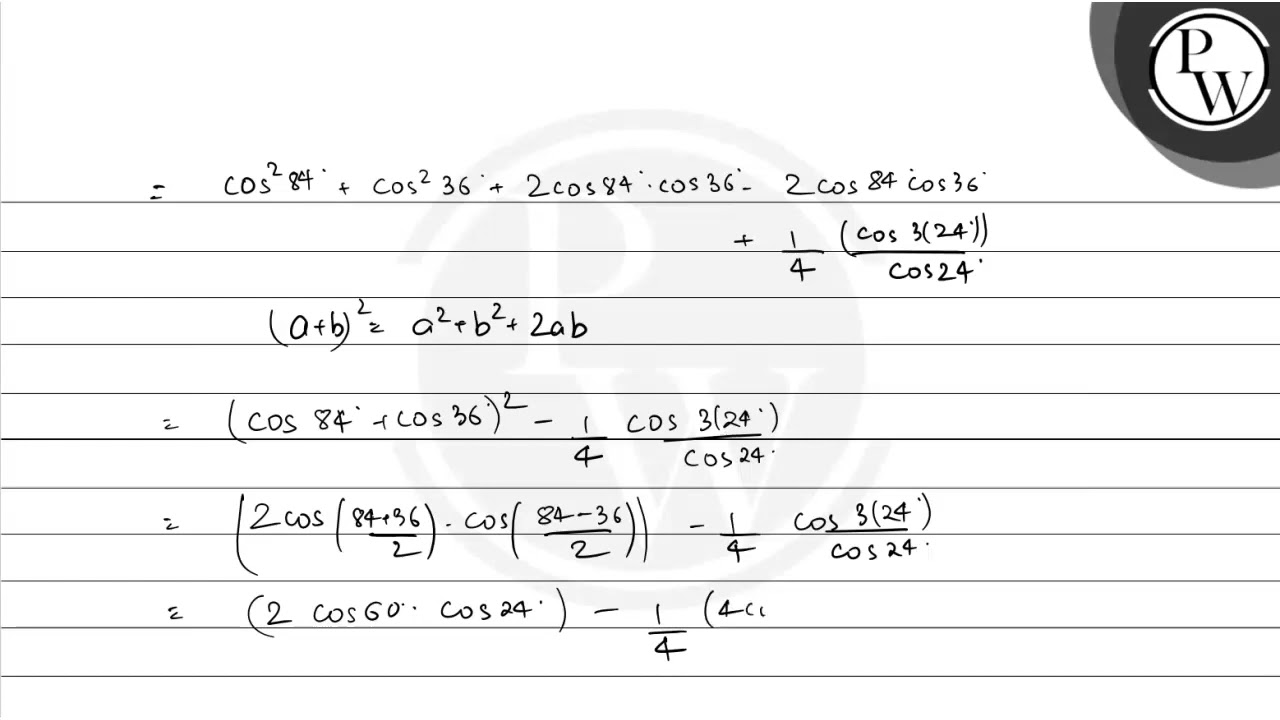 PW
= cos² 84° + cos² 36° + 2cos84°·cos36° - 2cos84°cos36°
+ 1/4 (cos 3(24°))/cos24°
(a+b)² = a²+b²+2ab
= (cos 84° + cos 36°)² - 1/4 cos 3(24°)/cos 24°
= (2cos((84+36)/2)·cos((84-36)/2)) - 1/4 cos 3(24°)/cos 24°
= (2 cos60°·cos24°) - 1/4 (4c